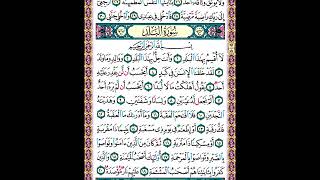 وَلَا يُوثِقُ وَثَاقَهُۥٓ أَحَدٌ ۝ يَٰٓأَيَّتُهَا ٱلنَّفْسُ ٱلْمُطْمَئِنَّةُ ۝ ٱرْجِعِىٓ
إِلَىٰ رَبِّكِ رَاضِيَةً مَّرْضِيَّةً ۝ فَٱدْخُلِى فِى عِبَٰدِى ۝ وَٱدْخُلِى جَنَّتِى ۝
سُورَةُ الْبَلَدِ
بِسْمِ ٱللَّهِ ٱلرَّحْمَٰنِ ٱلرَّحِيمِ
لَآ أُقْسِمُ بِهَٰذَا ٱلْبَلَدِ ۝ وَأَنتَ حِلٌّۢ بِهَٰذَا ٱلْبَلَدِ ۝ وَوَالِدٍ وَمَا وَلَدَ
۝ لَقَدْ خَلَقْنَا ٱلْإِنسَٰنَ فِى كَبَدٍ ۝ أَيَحْسَبُ أَن لَّن يَقْدِرَ عَلَيْهِ
أَحَدٌ ۝ يَقُولُ أَهْلَكْتُ مَالًا لُّبَدًا ۝ أَيَحْسَبُ أَن لَّمْ يَرَهُۥٓ أَحَدٌ
۝ أَلَمْ نَجْعَل لَّهُۥ عَيْنَيْنِ ۝ وَلِسَانًا وَشَفَتَيْنِ ۝ وَهَدَيْنَٰهُ
ٱلنَّجْدَيْنِ ۝ فَلَا ٱقْتَحَمَ ٱلْعَقَبَةَ ۝ وَمَآ أَدْرَىٰكَ مَا ٱلْعَقَبَةُ ۝
فَكُّ رَقَبَةٍ ۝ أَوْ إِطْعَٰمٌ فِى يَوْمٍ ذِى مَسْغَبَةٍ ۝ يَتِيمًا ذَا مَقْرَبَةٍ
۝ أَوْ مِسْكِينًا ذَا مَتْرَبَةٍ ۝ ثُمَّ كَانَ مِنَ ٱلَّذِينَ ءَامَنُوا۟ وَتَوَاصَوْا۟
بِٱلصَّبْرِ وَتَوَاصَوْا۟ بِٱلْمَرْحَمَةِ ۝ أُو۟لَٰٓئِكَ أَصْحَٰبُ ٱلْمَيْمَنَةِ ۝ وَٱلَّذِينَ
كَفَرُوا۟ بِـَٔايَٰتِنَا هُمْ أَصْحَٰبُ ٱلْمَشْـَٔمَةِ ۝ عَلَيْهِمْ نَارٌ مُّؤْصَدَةٌۢ ۝